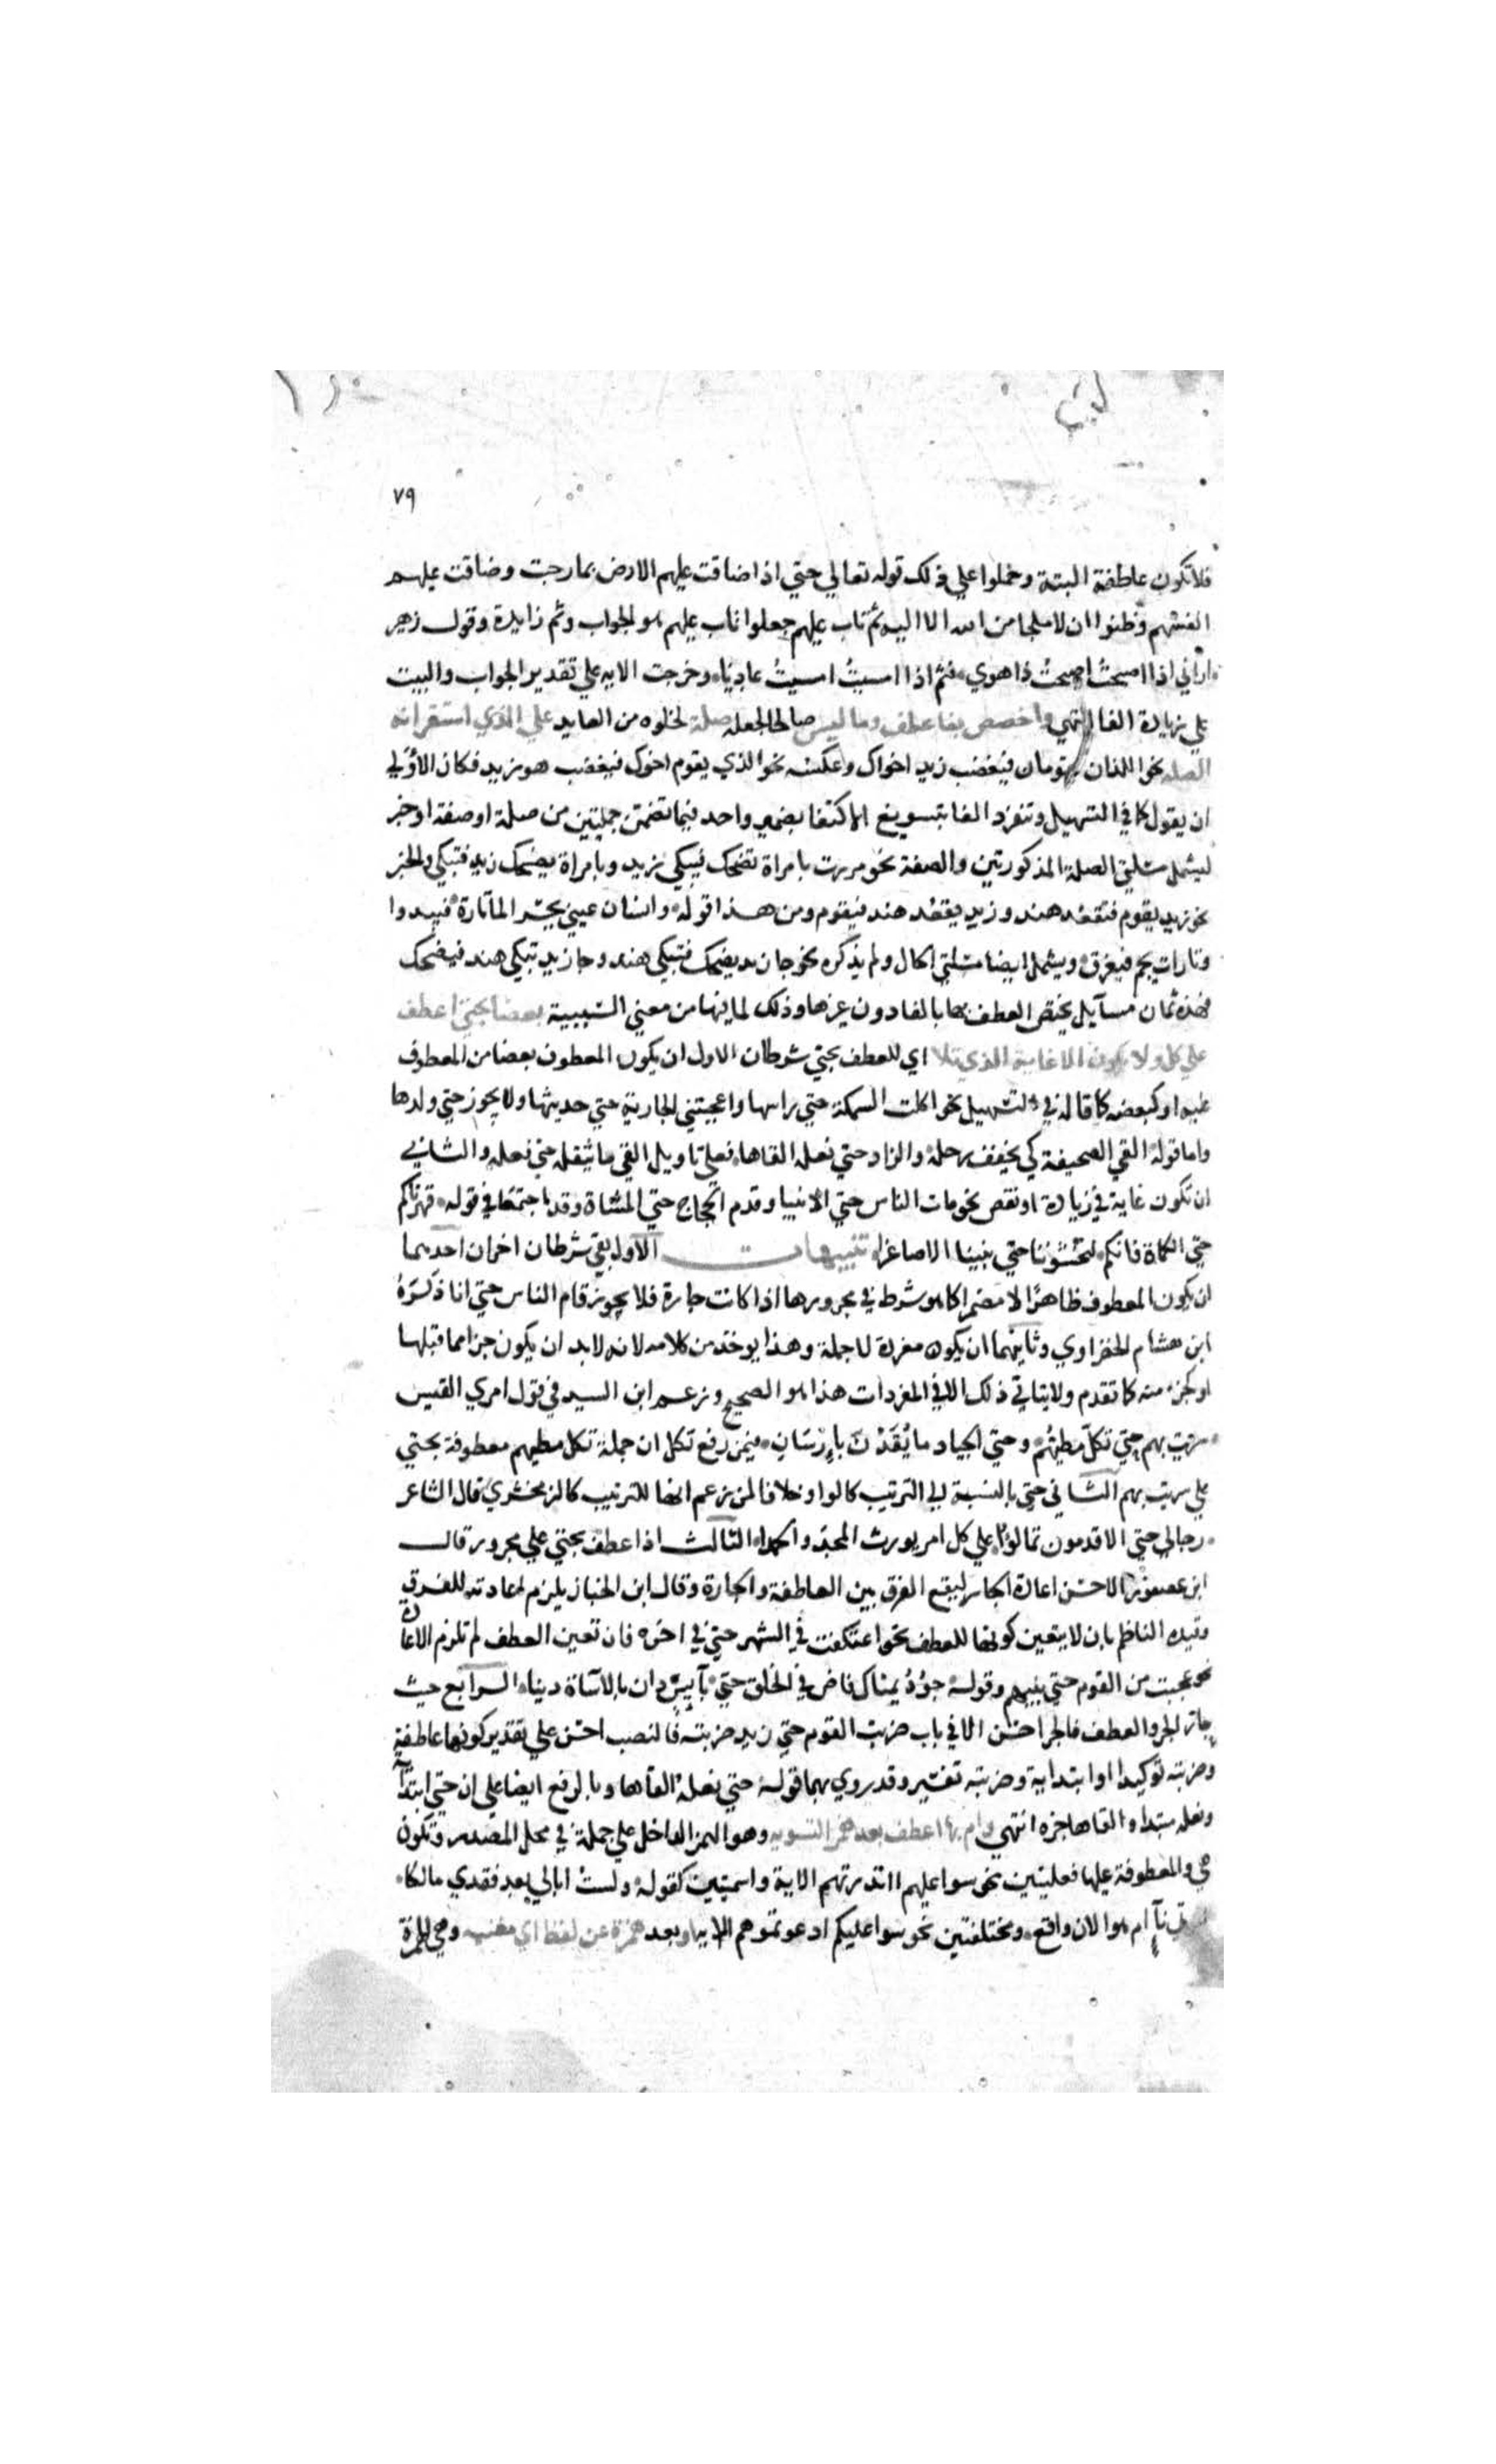 ٧٩
فلا تكون عاطفة البتة وحملوا علي ذلك قوله تعالي حتي اذا ضاقت عليهم الارض بما رحبت وضاقت عليهم
انفسهم وظنوا ان لا ملجا من الله الا اليه ثم تاب عليهم جعلوا تاب عليهم هو الجواب وثم زايدة وقول زهير
اراني اذا اصبحت اصبحت ذا هوي فثم اذا امسيت امسيت عاديا وخرجت الايه علي تقدير الجواب والبيت
علي زيادة الفا انتهي واخصص بفا عطف ما ليس صالحا لجعله صلة لخلوه من العايد علي الذي استقر انه
الصله نحو اللذان يقومان فيغضب زيد اخواك وعكسه نحو الذي يقوم اخوك فيغضب هو زيد فكان الاولي
ان يقول كما في التسهيل وتنفرد الفا بتسويغ الاكتفا بضمير واحد فيما تضمن جملتين من صلة او صفة او خبر
ليشمل مسئلتي الصلة المذكورتين والصفة نحو مررت بامراة تضحك فيبكي زيد وبامراة يضحك زيد فتبكي والخبر
نحو زيد يقوم فتقعد هند وزيد يقعد هند فيقوم ومن هذا قوله وانسان عيني يحسر الما تارة فيبدوا
وتارات يجم فيغرق ويشمل ايضا مسئلتي الحال ولم يذكره نحو جا زيد يضحك فتبكي هند وجا زيد تبكي هند فيضحك
فهذه ثمان مسايل يختص العطف بها بالفا دون غيرها وذلك لما فيها من معني السببية بعضا بحتي اعطف
علي كل ولا يكون الا غاية الذي تلا اي للعطف بحتي شرطان الاول ان يكون المعطوف بعضا من المعطوف
عليه او كبعضه كما قاله في التسهيل نحو اكلت السمكة حتي راسها واعجبتني الجارية حتي حديثها ولا يجوز حتي ولدها
واما قوله القي الصحيفة كي يخفف رحله والزاد حتي نعله القاها فعلي تاويل القي ما يثقله حتي نعله والثاني
ان تكون غاية في زيادة او نقص نحو مات الناس حتي الانبيا وقدم الحجاج حتي المشاة وقد اجتمعا في قوله قهرناكم
حتي الكماة فانكم لتخشوننا حتي بنينا الاصاغرا تنبيهات الاول بقي شرطان اخران احدهما
ان يكون المعطوف ظاهرا لا مضمرا كما هو شرط في مجرورها اذا كانت جارة فلا يجوز قام الناس حتي انا ذكره
ابن هشام الخضراوي وثانيهما ان يكون مفردا لا جملة وهذا يوخذ من كلامه لانه لا بد ان يكون جزا مما قبلها
او كجزء منه كما تقدم ولا يتاتي ذلك الا في المفردات هذا هو الصحيح وزعم ابن السيد في قول امري القيس
سريت بهم حتي تكل مطيهم وحتي الجياد ما يقدن بارسان فيمن رفع تكل ان جملة تكل مطيهم معطوفة بحتي
علي سريت بهم الثاني حتي بالنسبة الي الترتيب كالواو خلافا لمن زعم انها للترتيب كالزمخشري قال الشاعر
رجالي حتي الاقدمون تمالؤا علي كل امر يورث المجد والحمدا الثالث اذا عطف بحتي علي مجرور قال
ابن عصفور الاحسن اعادة الجار ليقع الفرق بين العاطفة والجارة وقال ابن الخباز يلزم اعادته للفرق
وقيده الناظم بان لا يتعين كونها للعطف نحو اعتكفت في الشهر حتي في اخره فان تعين العطف لم تلزم الاعادة
نحو عجبت من القوم حتي بنيهم وقوله جود يمناك فاض في الخلق حتي بآيس دان بالاساة دينا الرابع حيث
جاز الجر والعطف فالجر احسن الا في باب ضربت القوم حتي زيد ضربته فالنصب احسن علي تقدير كونها عاطفة
وضربته توكيدا او ابتدايية وضربته تفسير وقد روي بهما قوله حتي نعله القاها وبالرفع ايضا علي ان حتي ابتدائية
ونعله مبتدا والقاها خبره انتهي وام بها اعطف بعد همز التسويه وهو الهمز الداخل علي جملة في محل المصدر وتكون
هي والمعطوفة عليها فعليتين نحو سوا عليهم ااندرتهم الاية واسميتين كقوله ولست ابالي بعد فقدي مالكا
ناء ام هو الان واقع ومختلفتين نحو سوا عليكم ادعوتموهم الايه او بعد همزة عن لفظ اي مغنيه وهي الهمزة